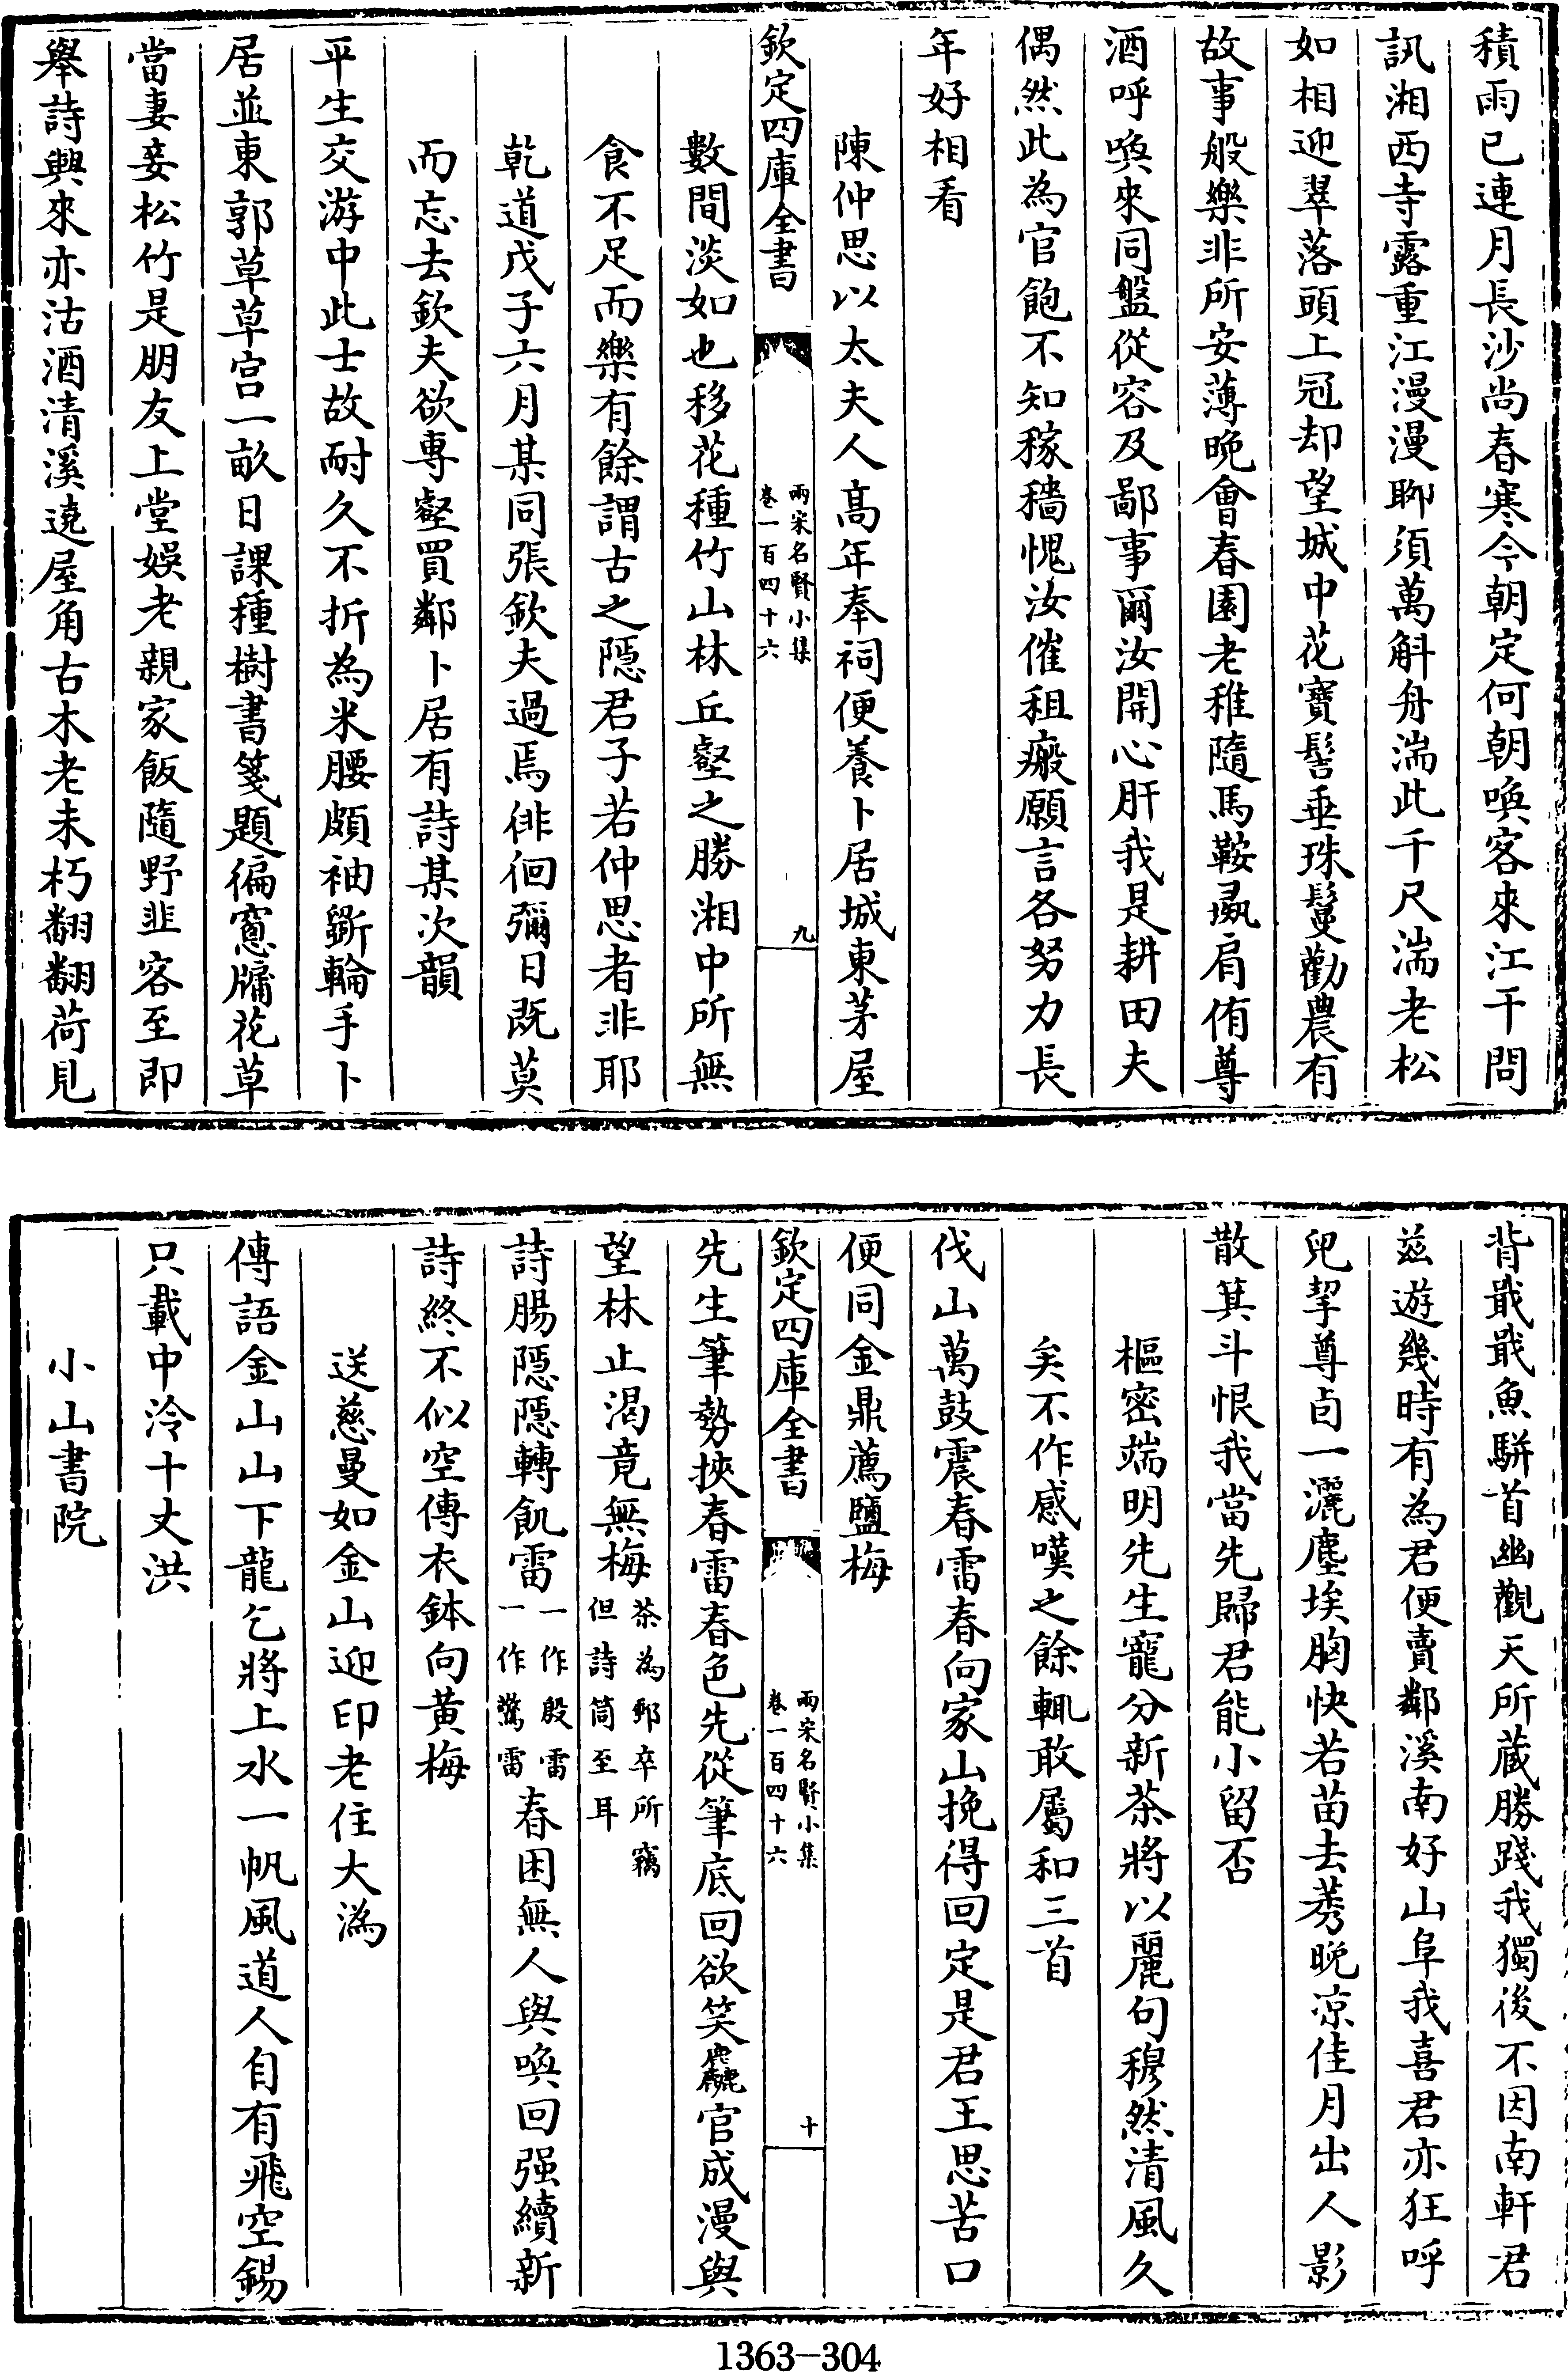 積雨已連月長沙尚春寒今朝定何朝喚客來江干問
訊湘西寺露重江漫漫聊須萬斛舟湍此千尺湍老松
如相迎翠落頭上冠却望城中花寶髻垂珠鬘勸農有
故事般樂非所安薄晚會春園老稚隨馬鞍彘肩侑尊
酒呼喚來同盤從容及鄙事爾汝開心肝我是耕田夫
偶然此為官飽不知稼穡愧汝催租瘢願言各努力長
年好相看
陳仲思以太夫人髙年奉祠便養卜居城東茅屋
欽定四庫全書
兩宋名賢小集
卷一百四十六
九
數間淡如也移花種竹山林丘壑之勝湘中所無
食不足而樂有餘謂古之隱君子若仲思者非耶
乾道戊子六月某同張欽夫過焉徘徊彌日既莫
而忘去欽夫欲專壑買鄰卜居有詩某次韻
平生交游中此士故耐久不折為米腰頗袖斵輪手卜
居並東郭草草宫一畝日課種樹書箋題徧窻牖花草
當妻妾松竹是朋友上堂娛老親家飯隨野韭客至即
舉詩興來亦沽酒清溪遶屋角古木老未朽翻翻荷見
背戢戢魚駢首幽觀天所藏勝踐我獨後不因南軒君
兹遊幾時有為君便賣鄰溪南好山阜我喜君亦狂呼
兒挈尊卣一灑塵埃胸快若苗去莠晚凉佳月出人影
散箕斗恨我當先歸君能小留否
樞密端明先生寵分新茶將以麗句穆然清風久
矣不作感嘆之餘輒敢屬和三首
伐山萬鼓震春雷春向家山挽得回定是君王思苦口
便同金鼎薦鹽梅
欽定四庫全書
兩宋名賢小集
卷一百四十六
十
先生筆勢挾春雷春色先從筆底回欲笑麤官成漫與
望林止渴竟無梅茶為郵卒所竊但詩筒至耳
詩腸隱隱轉飢雷一作殷雷一作驚雷春困無人與喚回强續新
詩終不似空傳衣鉢向黄梅
送慈曼如金山迎印老住大溈
傳語金山山下龍乞將上水一帆風道人自有飛空錫
只載中泠十丈洪
小山書院
1363-304